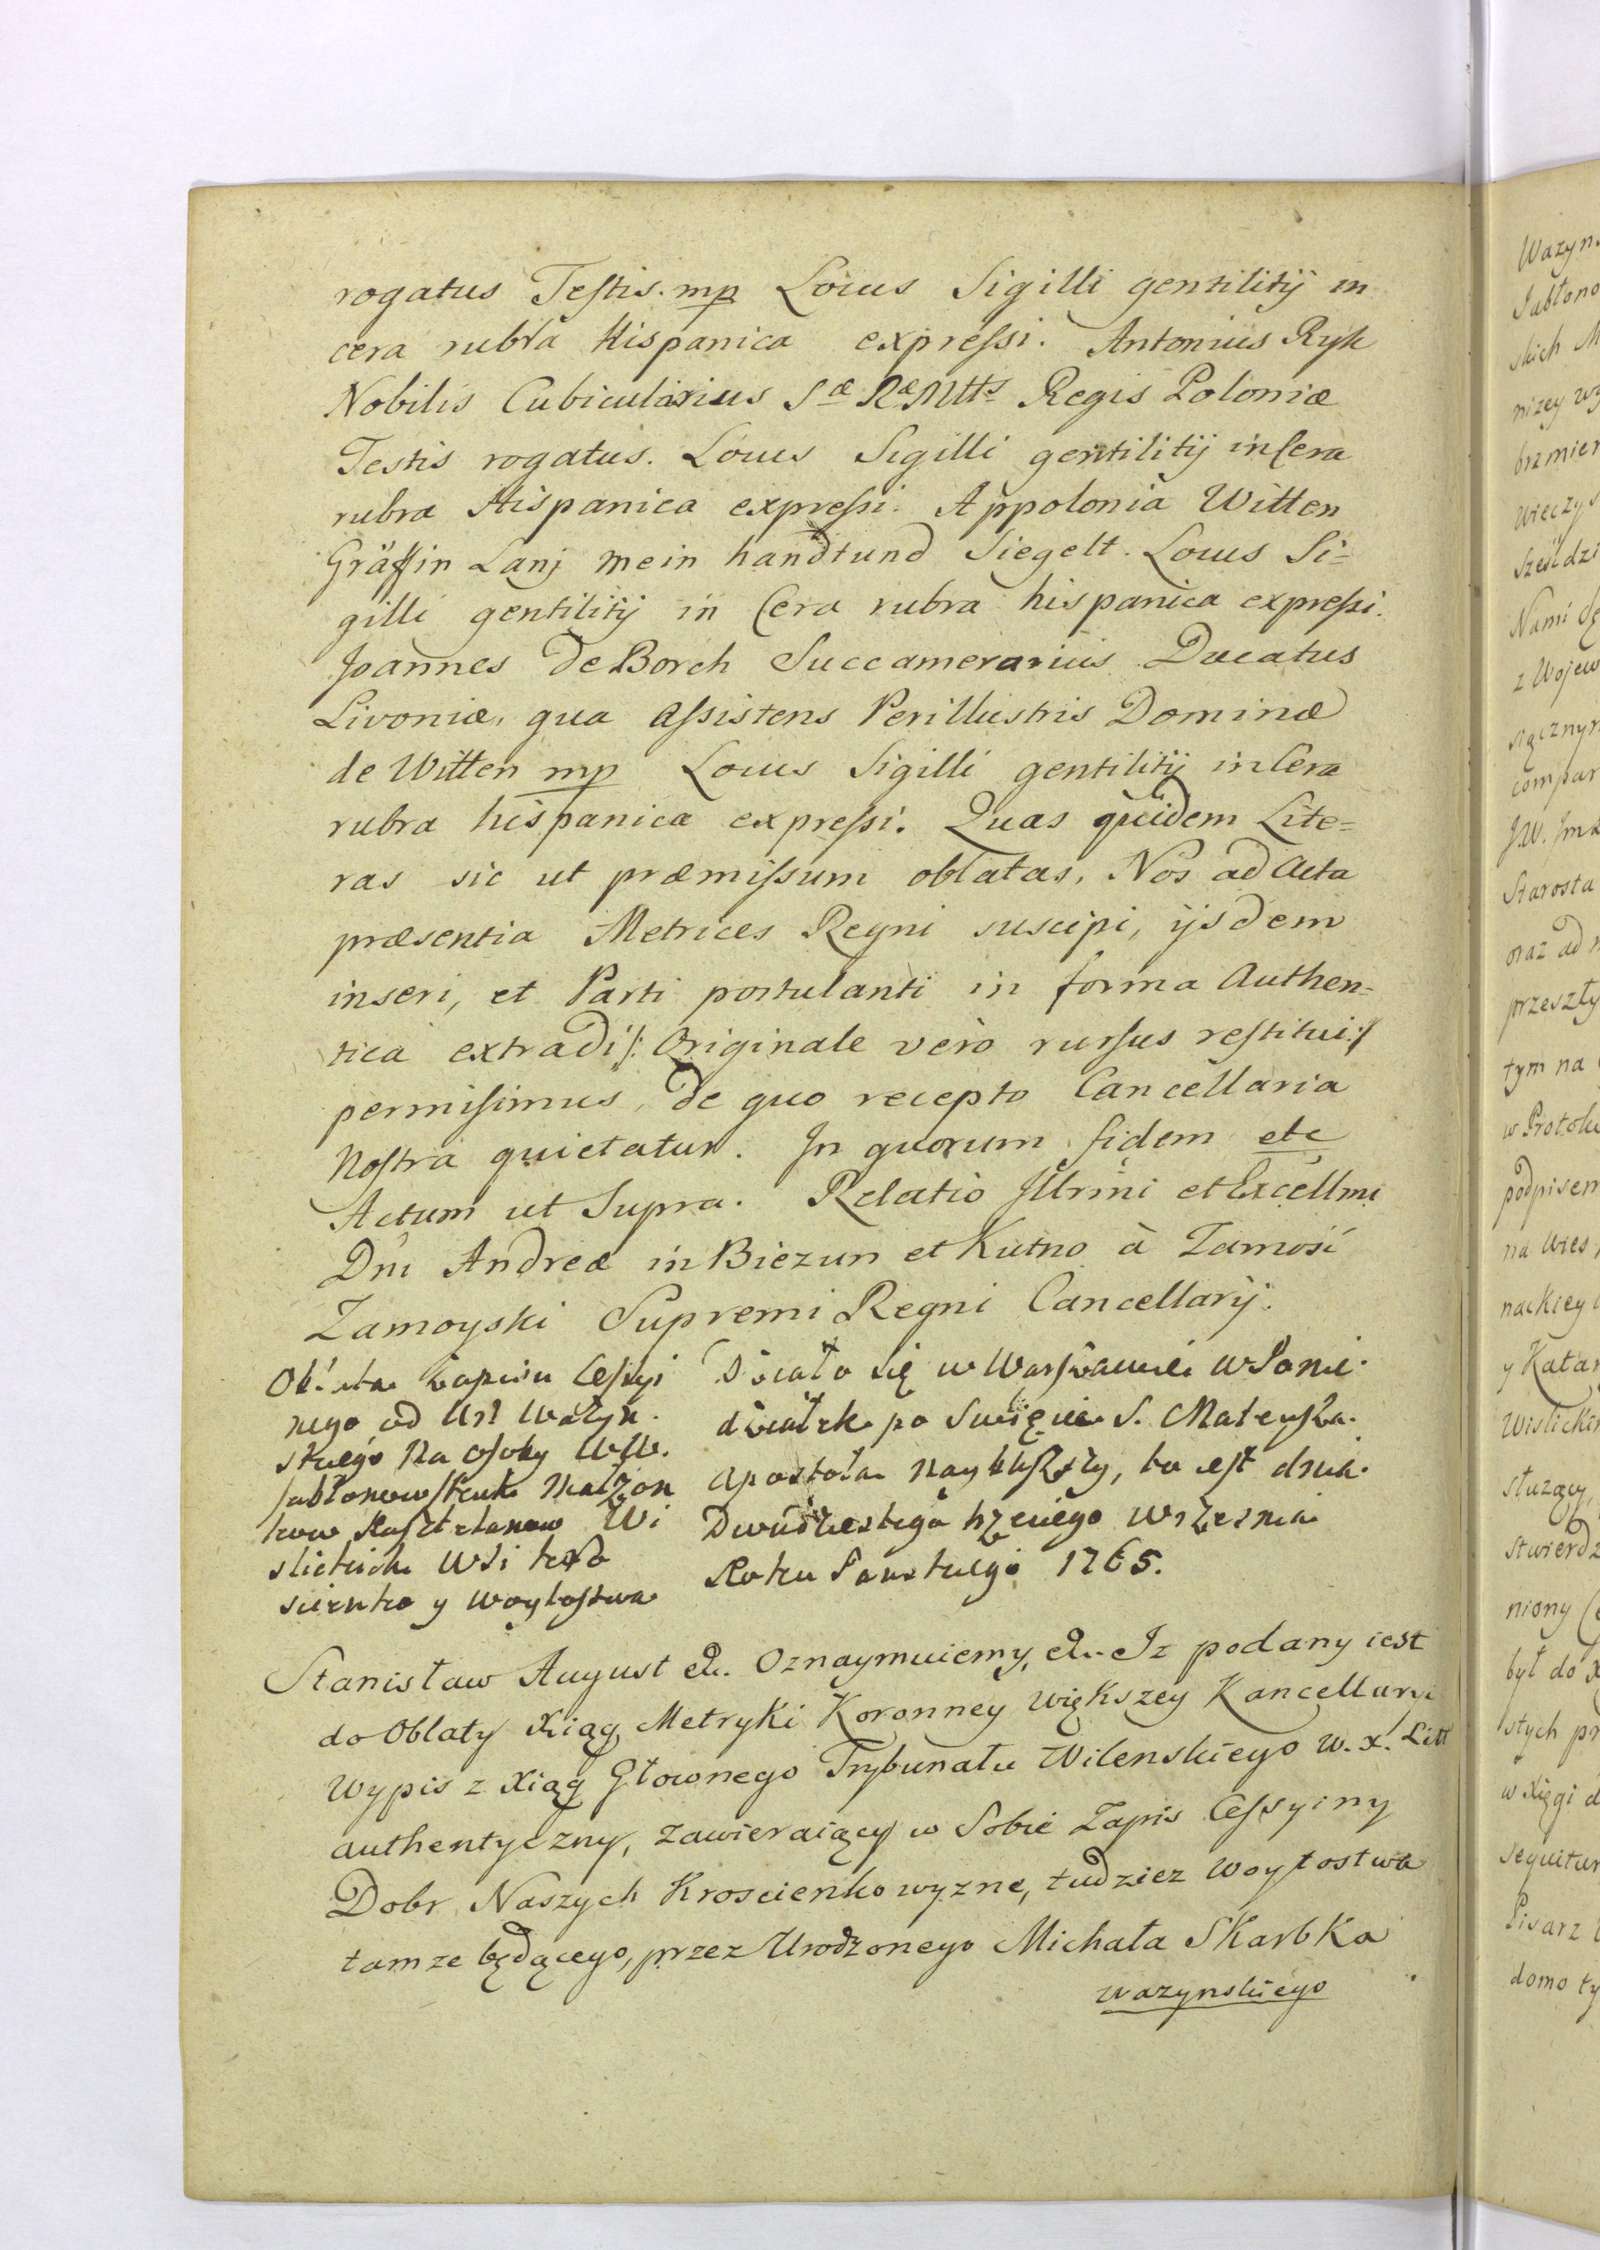 rogatus Testis. mp Locus Sigilli gentilitij in
cera rubra Hispanica expressi. Antonius Ryk
Nobilis Cubicularius Sæ Ræ Mtts Regis Poloniæ
Testis rogatus. Locus Sigilli gentilitij in Cera
rubra Hispanica expressi. Appolonia Witten
Gräffin Lanj mein handtund Siegelt. Locus Si=
gilli gentilitij in Cera rubra hispanica expressi.
Joannes de Borch Succamerarius Ducatus
Livoniæ, qua Assistens Perillustris Dominæ
de Witten mp Locus Sigilli gentilitij in Cera
rubra hispanica expressi. Quas quidem Lite=
ras sic ut præmissum oblatas, Nos ad Acta
præsentia Metrices Regni suscipi, ijsdem
inseri, et Parti postulanti in forma Authen=
tica extradi /: Originale verò rursus restitui :/
permisimus, de quo recepto Cancellaria
Nostra quietatur. In quorum fidem etc
Actum ut Supra. Relatio Illrmi et Excellmi
Dni Andreæ in Biezun et Kutno à Zamość
Zamoyski Supremi Regni Cancellarij.
Oblata Zapisu Cessyi
nego od Ur Ważyn
skiego Na osoby WW.
Jabłonowskich Małżon
kow Kasztelanow Wi
slickich Wsi Kro
scienko y Woytostwa
Działo się w Warszawie w Ponie
działek po Swięcie S. Mateusza
Apostoła Naybliższy, to iest dnia
Dwudziestego trzeciego Września
Roku Panskiego 1765.
Stanisław August etc. Oznaymuiemy, etc. Iz podany iest
do Oblaty Xiąg Metryki Koronney większey Kancellaryi
Wypis z Xiąg Głownego Trybunału Wilenskiego W. X. Litt
authentyczny, zawieraiący w Sobie Zapis Cessyiny
Dobr Naszych Kroscienko wyzne, tudziez Woytostwa
tamze będącego, przez Urodzonego Michała Skarbka
wazynskiego